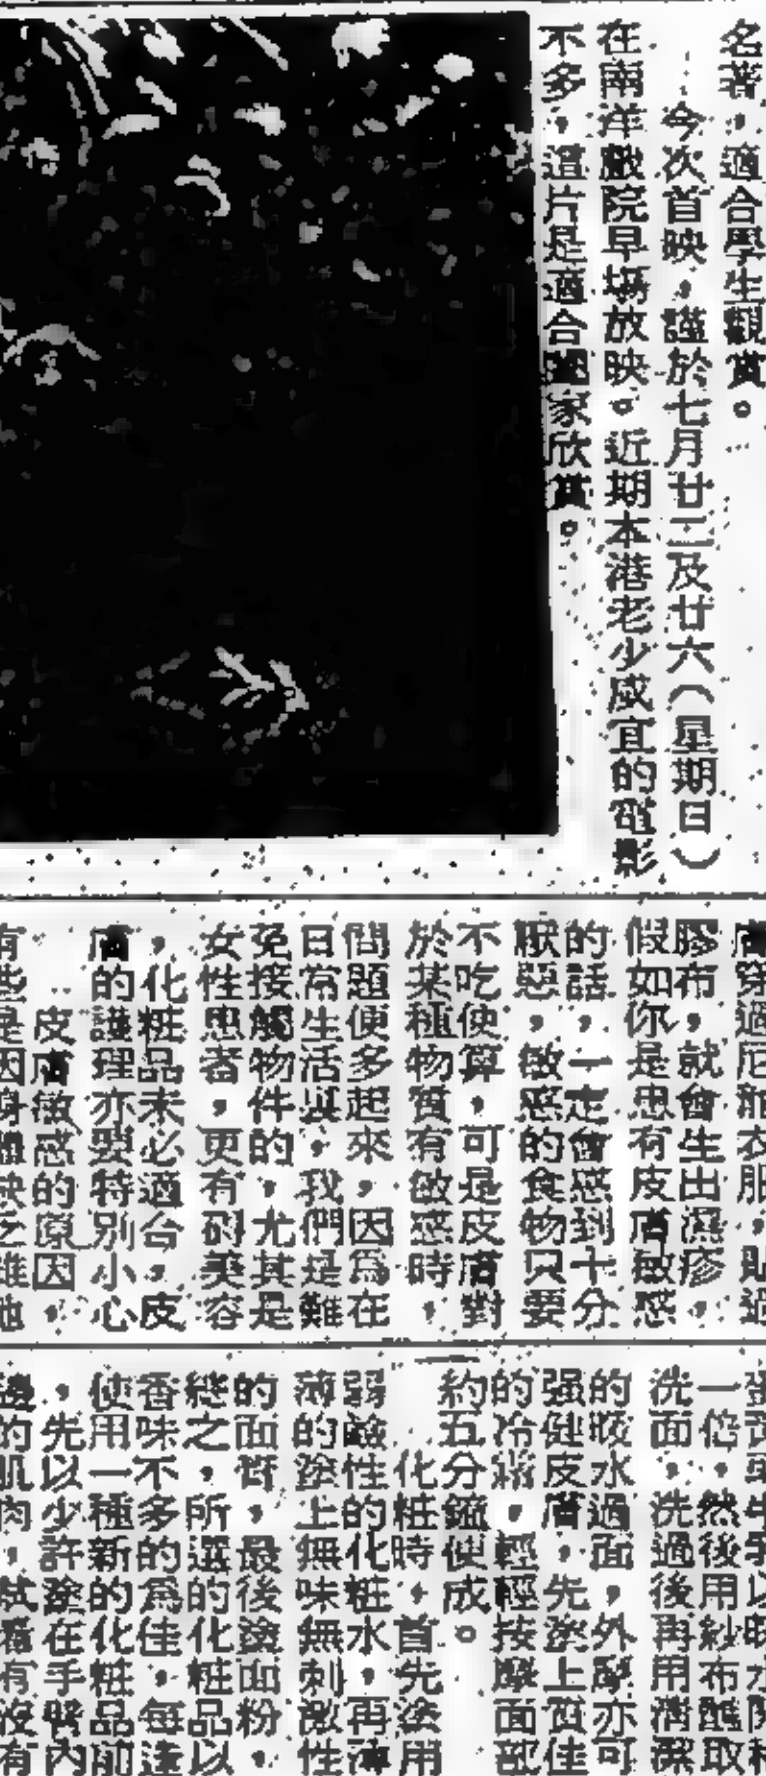 名著，適合學生觀賞。
今次首映，謹於七月廿二及廿六（星期日）
在南洋戲院早場放映。近期本港老少咸宜的電影
不多，這片是適合家欣賞。
膚穿過尼龍衣服，貼過
膠布，就會生出濕疹，
假如你是患有皮膚敏感
的話，一定會感到十分
厭惡，敏感的食物只要
不吃便算，可是皮膚對
於某種物質有敏感時，
問題便多起來，因爲在
日常生活與，我們是難
免接觸物件的，尤其是
女性患者，更有礙美容
，化粧品未必適合，皮
膚的護理亦要特別小心
皮膚敏感的原因，
有些是因身體缺乏維他
一倍，然後用紗布醮取
洗面，洗過後再用清潔
的暖水過面，外摩亦可
强健皮膚，先塗上質佳
的冷霜，輕輕按摩面部
約五分鐘便成。
化粧時，首先塗用
弱鹼性的化粧水，再薄
薄的塗上無味無刺激性
的面霄，最後塗面粉，
總之，所選的化粧品以
香味不多的爲佳，每逢
使用一種新的化粧品前
，先以少許塗在手臂內
邊的肌肉，試看有沒有